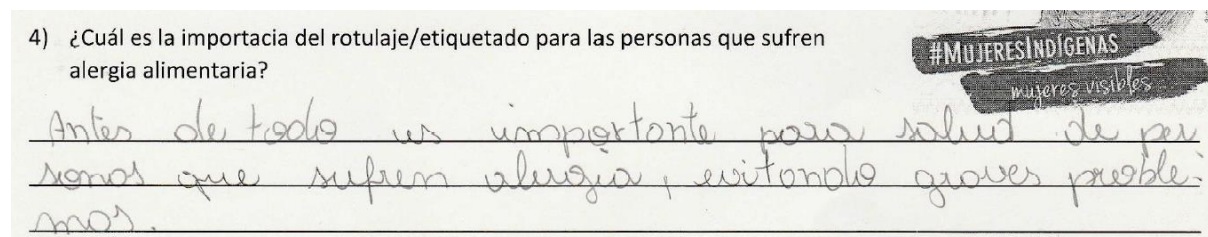 4) ¿Cuál es la importacia del rotulaje/etiquetado para las personas que sufren
alergia alimentaria?
#MUJERESINDÍGENAS
mujeres visibles
Antes de todo es importante para salud de per
sonas que sufren alergia, evitando graves proble-
mas.